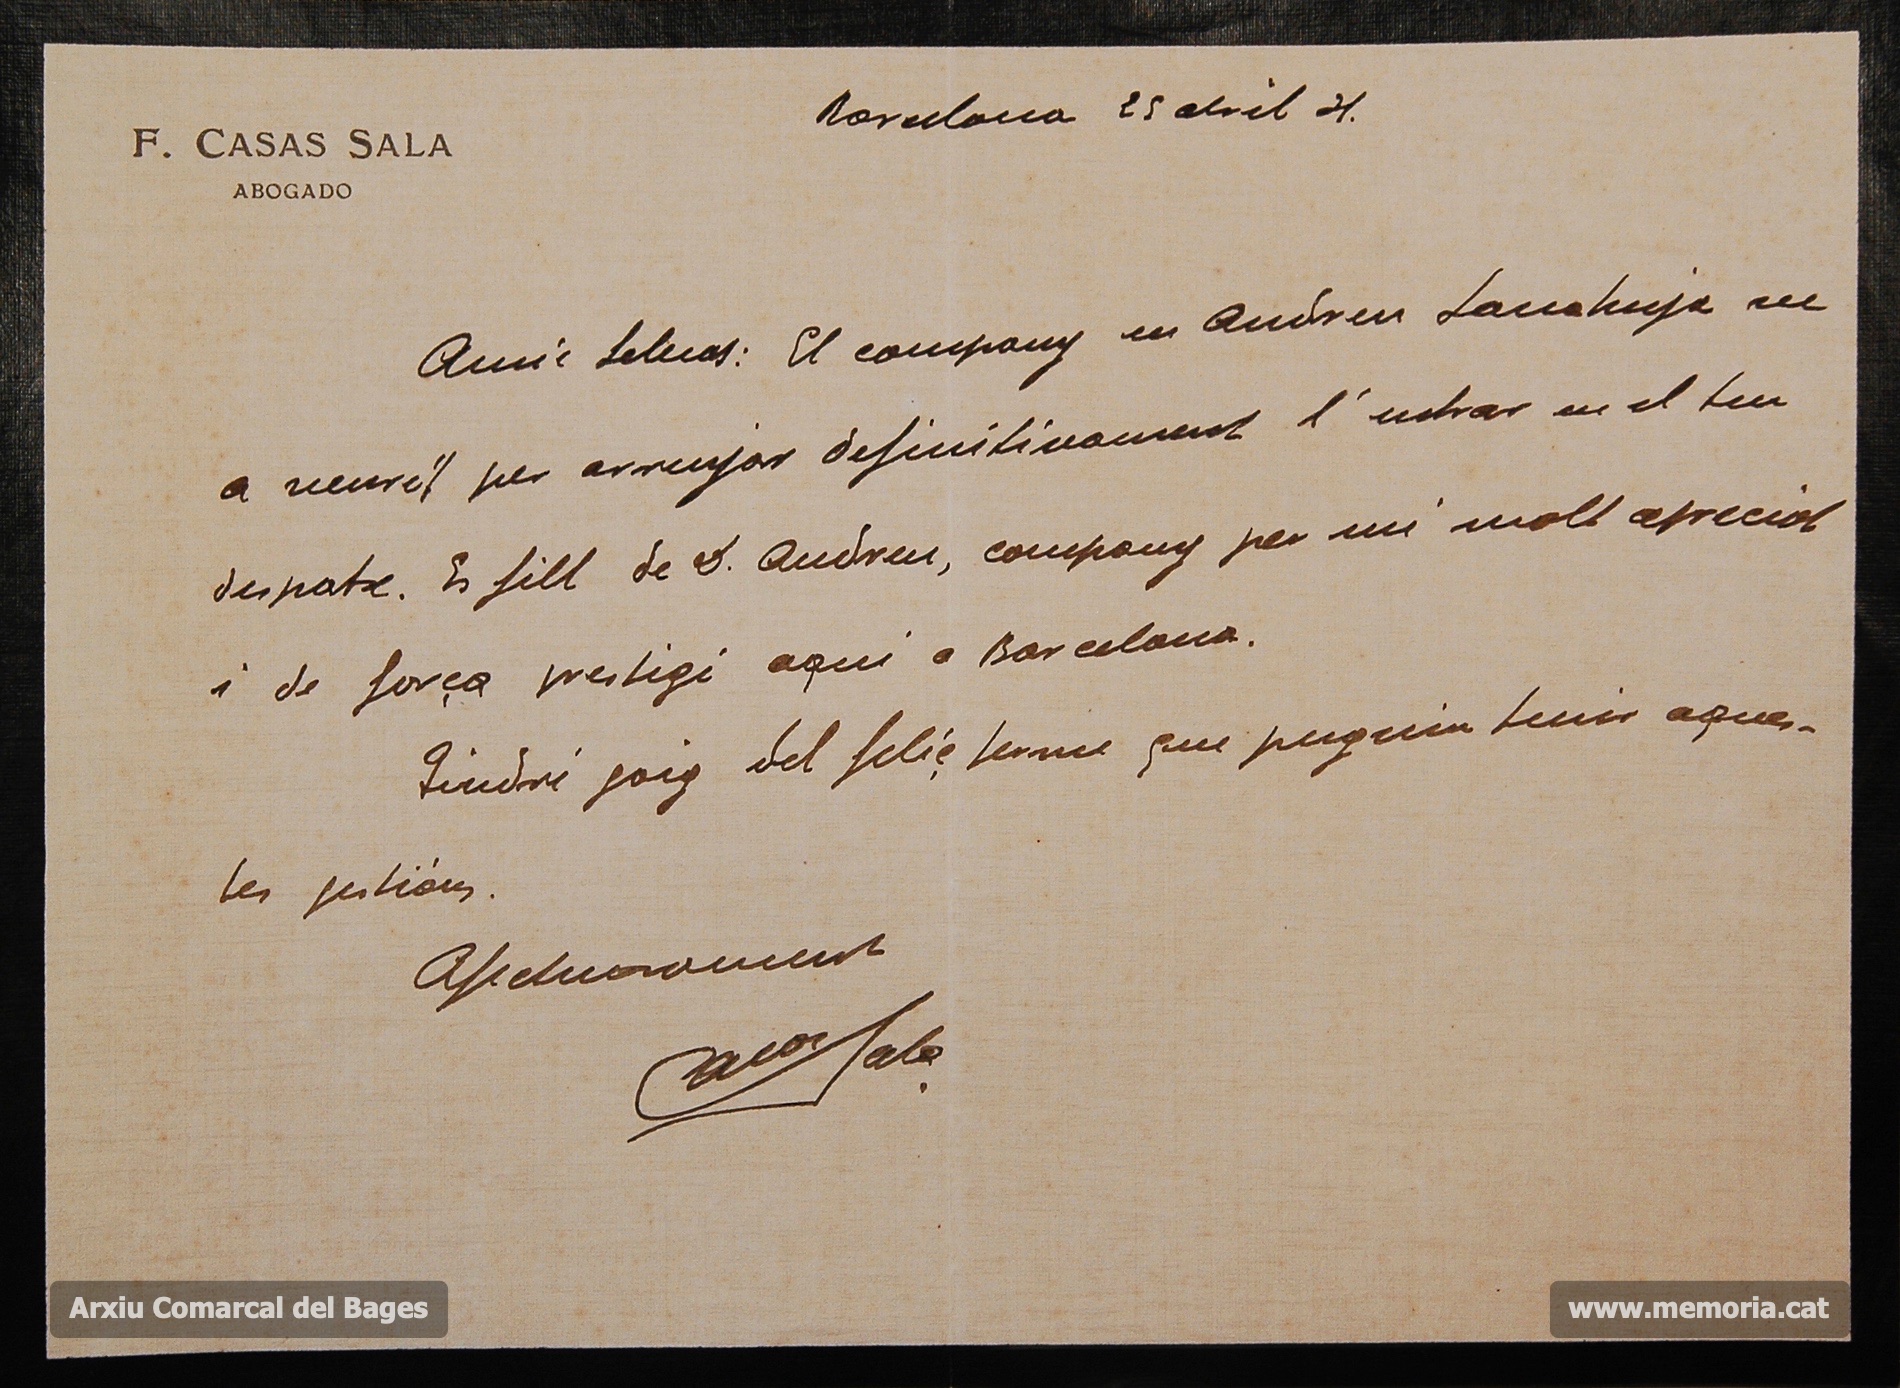 F. CASAS SALA
ABOGADO
Barcelona 25 abril 31.
Amic Selvas: El company en Andreu Sanahuja ve
a veure't per arrenjar definitivament l'entrar en el teu
despatx. Es fill de D. Andreu, company per mi molt apreciat
i de força prestigi aqui a Barcelona.
Tindré goig del feliç terme que puguin tenir aques-
tes gestións.
Afectuosament
Casas Sala
Arxiu Comarcal del Bages
www.memoria.cat